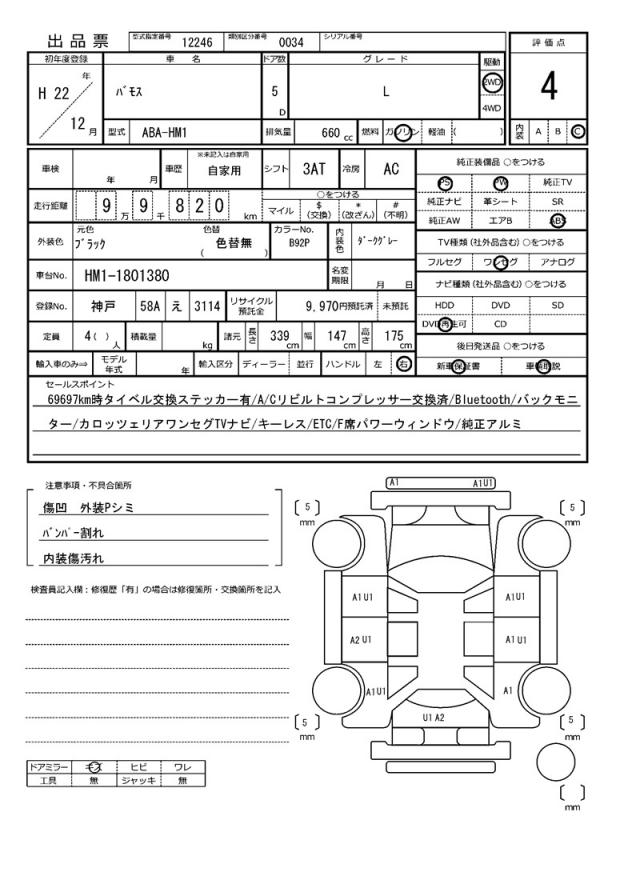 出品票 型式指定番号 12246 類別区分番号 0034 シリアル番号
評価点
初年度登録 車名 ドア数 グレード 駆動
H 22 年 バモス 5 D L 2WD 4WD 4
12 月 型式 ABA-HM1 排気量 660 cc 燃料 ガソリン 軽油 ( ) 内装 A B C
車検 年 月 車歴 ※未記入は自家用 自家用 シフト 3AT 冷房 AC
純正装備品 ○をつける
PS PW 純正TV
走行距離 9 万 9 千 8 2 0 km ○をつける
マイル $ (交換) * (改ざん) # (不明)
純正ナビ 革シート SR
純正AW エアB ABS
外装色 元色 ブラック 色替 ( 色替無 ) カラーNo. B92P 内装色 ダークグレー
TV種類 (社外品含む) ○をつける
フルセグ ワンセグ アナログ
車台No. HM1-1801380 名変期限 月 日
ナビ種類 (社外品含む) ○をつける
登録No. 神戸 58A え 3114 リサイクル預託金 9,970円預託済 未預託
HDD DVD SD
DVD再生可 CD
定員 4( ) 人 積載量 kg 諸元 長さ 339 cm 幅 147 cm 高さ 175 cm
後日発送品 ○をつける
輸入車のみ⇒ モデル年式 年 輸入区分 ディーラー 並行 ハンドル 左 右
新車保証書 車輌取説
セールスポイント
69697km時タイベル交換ステッカー有/A/Cリビルトコンプレッサー交換済/Bluetooth/バックモニ
ター/カロッツェリアワンセグTVナビ/キーレス/ETC/F席パワーウィンドウ/純正アルミ
注意事項・不具合箇所
傷凹 外装Pシミ
バンパー割れ
内装傷汚れ
検査員記入欄：修復歴「有」の場合は修復箇所・交換箇所を記入
A1 A1U1
5 mm 5 mm
A1U1 A1U1
A2U1 A1U1
A1U1 A1
U1A2
5 mm 5 mm
mm
ドアミラー キズ ヒビ ワレ
工具 無 ジャッキ 無